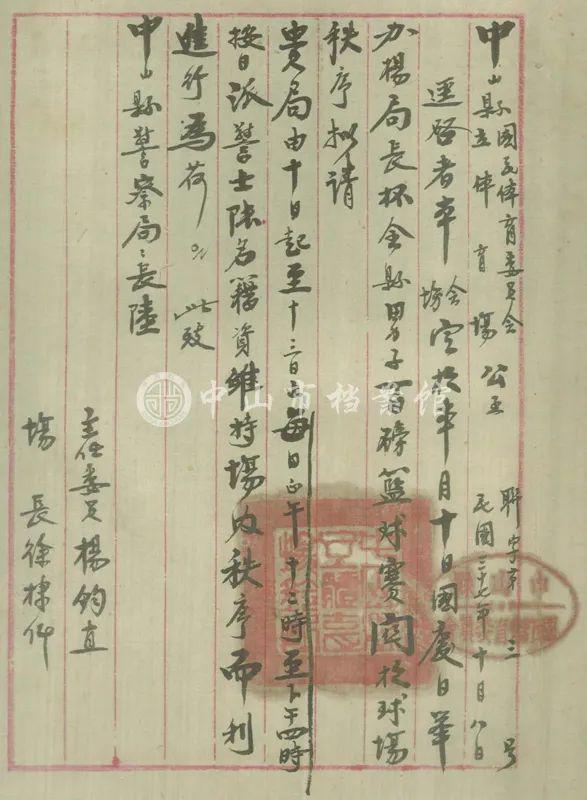 中山縣國民体育委員會
縣立体育場 公函
聯字第三号
民國三十七年十月八日
逕啓者本會場定於本年月十日國慶日舉
办楊局長杯全縣男子一百磅籃球賽関於球場
秩序拟請
貴局由十日起至十三日止每日正午十二時至下午四時
按日派警士陸名藉資維持場内秩序而利
進行為荷此致
中山縣警察局局長陸
主任委員楊鈞直
場長徐棣
中山市档案馆